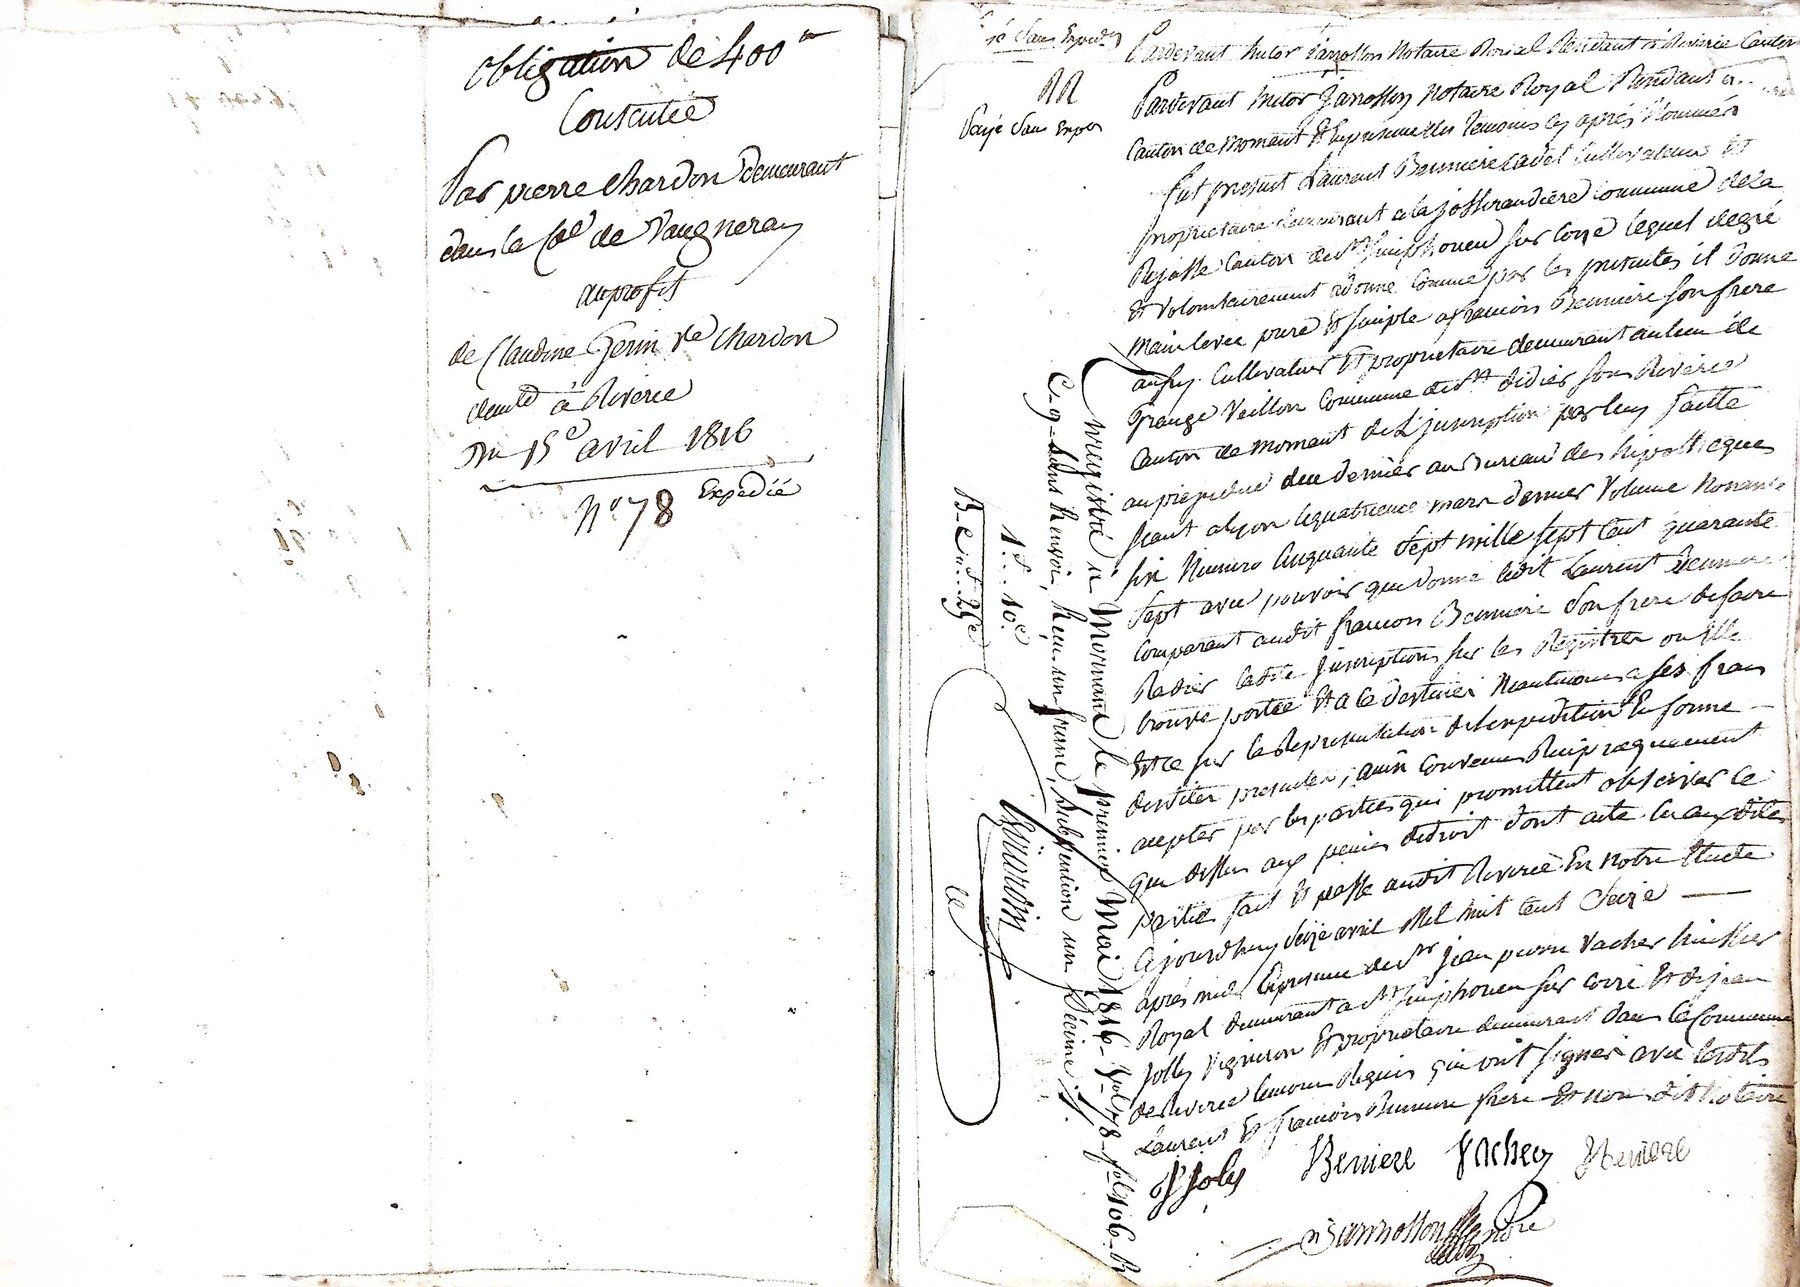 obligation de 400
Consentie
Par pierre chardon demeurant
dans la de Vaugneray
au profit
de Claudine Gerin ve chardon
à Riverie
Du 15e avril 1816
N° 78 Expedié
sans
Pardevant notaire Royal à Riverie Canton
RR
sans
Pardevant notaire Royal Résidant à
Canton de Mornant Et En presence des temoins cy après Nommés
fut present Laurent Bennière cadet Cultivateur Et
proprietaire demeurant a la josserandière commune de la
Rajasse Canton de St Simphorien sur Coize lequel de gré
Et volontairement a donné Comme par les presentes il donne
main levée pure Et simple a francois Bennière son frere
Cultivateur Et proprietaire demeurant au lieu de
Grange Veillon Commune de St didier sous Riverie
Canton de Mornant de L'inscription par luy faitte
au prejudice de ce dernier au Bureau des hipothecques
seant a Lyon le quatrieme mars dernier Volume Nonante
six Numero Cinquante Sept mille sept Cent quarante
Sept avec pouvoir que donne ledit Laurent Bennière
Comparant audit francois Bennière son frere de faire
Radier ladite Inscription sur les Registres ou Elle
trouve portée Et a ce destinés Neantmoins a ses frais
Et ce sur la Representation de l'expedition En forme
desdites presentes, ainsi Convenu Reciproquement
accepter par les parties qui promittent observer ce
que dessus aux peines de droit dont acte lu aux dites
parties fait Et passé audit Riverie En notre Etude
Ajourdhuy Seize avril Mil huit Cent Seize
après midy En presence de Sr jean pierre Vacher huissier
Royal demeurant a St Simphorien sur Coize Et de jean
Jolly Vigneron Et proprietaire demeurant dans la Commune
de Riverie temoins Requis qui ont signés avec lesdits
Laurent Et francois Bennière frere Et nous dit Notaire
Bennière Vacher Bennière
Enregistré à Mornant le premier Mai 1816 - Vol 78 - fol 106 - R
C. 9 - sans Renvoi, Reçu un franc, subvention un Décime
1f..10c